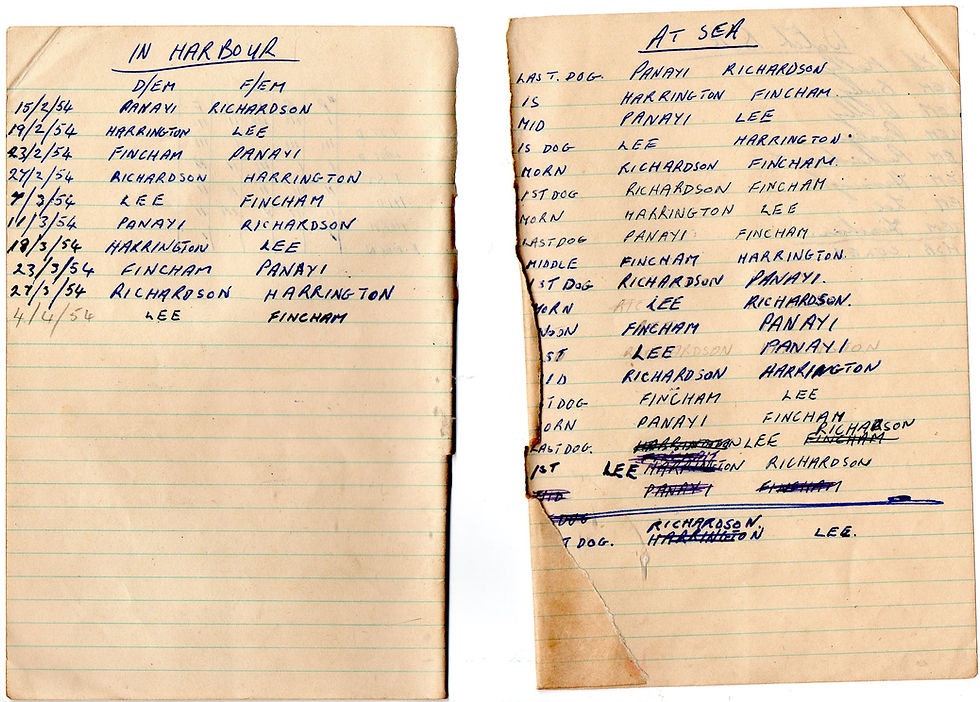 IN HARBOUR
D/EM F/EM
15/2/54 PANAYI RICHARDSON
19/2/54 HARRINGTON LEE
23/2/54 FINCHAM PANAYI
27/2/54 RICHARDSON HARRINGTON
7/3/54 LEE FINCHAM
11/3/54 PANAYI RICHARDSON
18/3/54 HARRINGTON LEE
23/3/54 FINCHAM PANAYI
27/3/54 RICHARDSON HARRINGTON
4/4/54 LEE FINCHAM
AT SEA
LAST. DOG. PANAYI RICHARDSON
IS HARRINGTON FINCHAM.
MID PANAYI LEE
IS DOG LEE HARRINGTON.
MORN RICHARDSON FINCHAM.
1ST DOG RICHARDSON FINCHAM
MORN HARRINGTON LEE
LAST DOG PANAYI FINCHAM
MIDDLE FINCHAM HARRINGTON.
1ST DOG RICHARDSON PANAYI.
MORN LEE RICHARDSON.
NOON FINCHAM PANAYI
ST LEE PANAYI
ID RICHARDSON HARRINGTON
T DOG FINCHAM LEE
ORN PANAYI FINCHAM
RICHARDSON
LAST DOG. HARRINGTON LEE FINCHAM
FINCHAM
1ST LEE HARRINGTON RICHARDSON
MID PANAYI FINCHAM
DOG
RICHARDSON.
T DOG. HARRINGTON LEE.